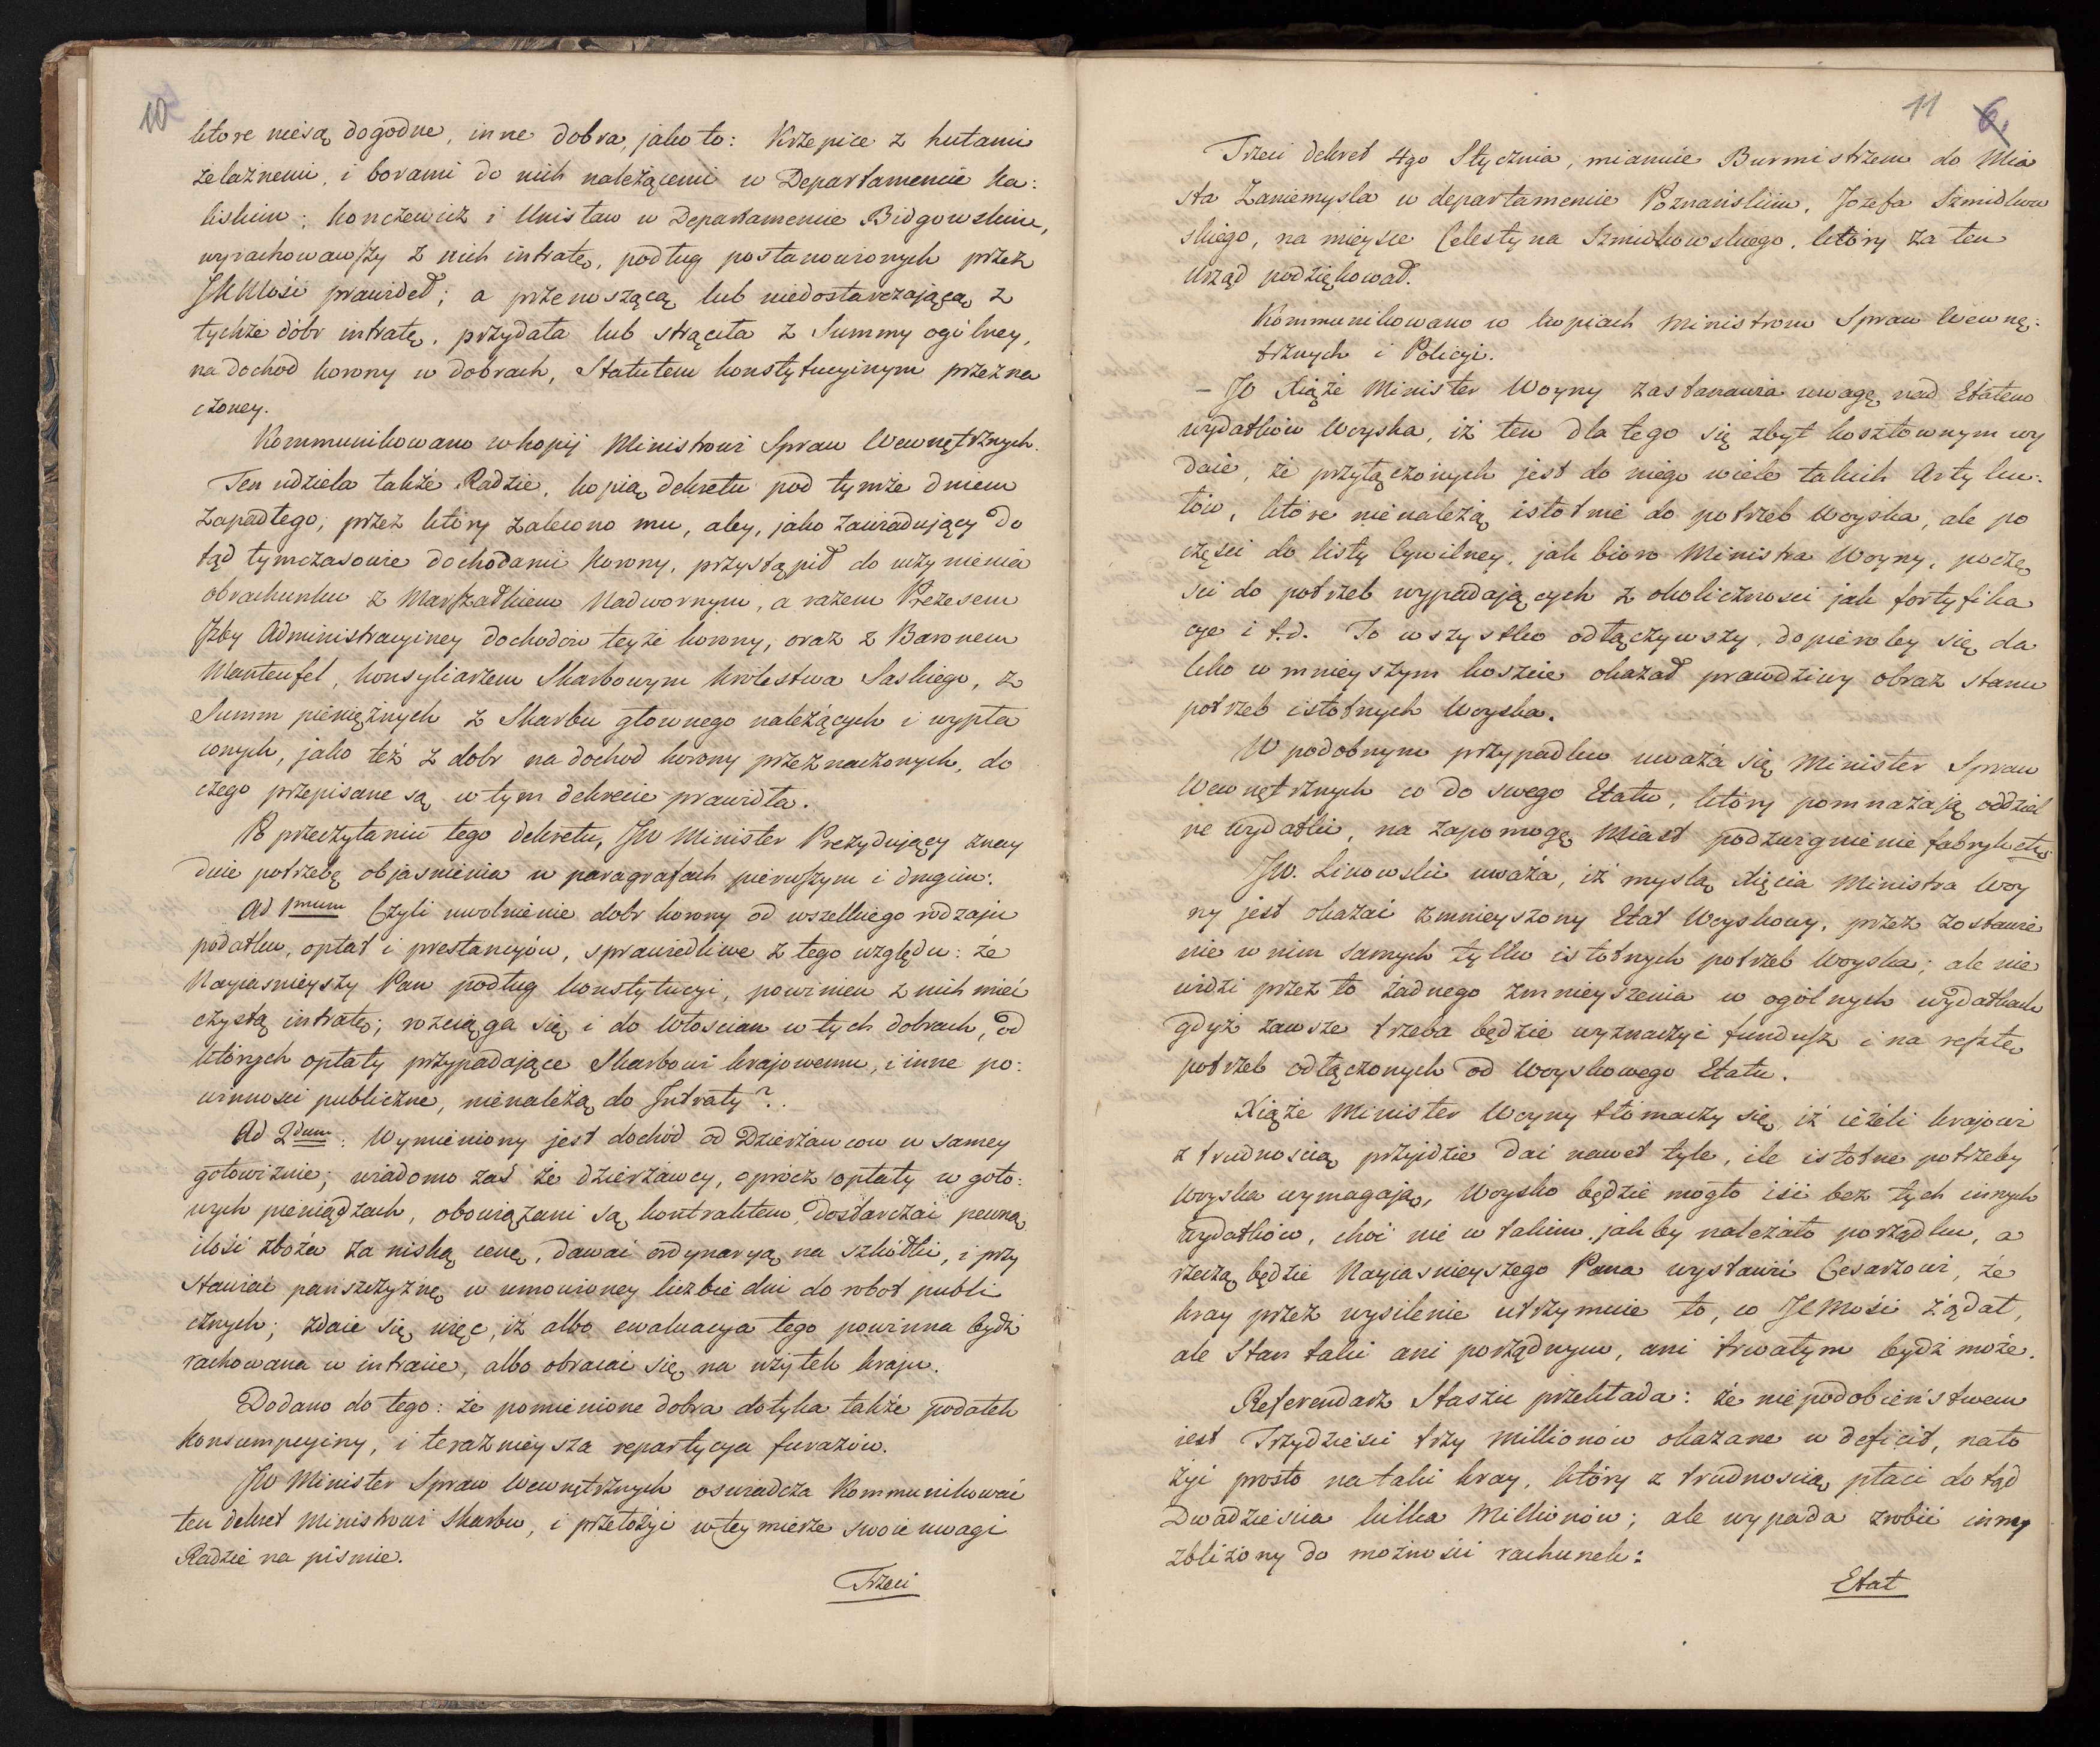 10
ktore niesą dogodne, inne dobra, jako to: Krzepice z hutami
żelaznemi, i borami do nich należącemi w Departamencie Ka:
liskim; Konczewicz i Unisław w Departamencie Bidgowskim,
wyrachowawszy z nich intratę, podług postanowionych przez
JKMość prawideł; a przenoszącą lub niedostarczającą z
tychże dóbr intratę, przydała lub strąciła z Summy ogólney,
na dochod korony w dobrach, Statutem konstytucyinym przezna
czoney.
Kommunikowano w kopij Ministrowi Spraw Wewnętrznych.
Ten udziela także Radzie, kopią dekretu pod tymże dniem
zapadłego; przez ktory zalecono mu, aby, jako zawiadujący do
tąd tymczasowie dochodami korony, przystąpił do uczynienia
obrachunku z Marszałkiem Nadwornym, a razem Prezesem
Izby Administracyiney dochodów teyże korony, oraz z Baronem
Manteufel, konsyliarzem Skarbowym Krolestwa Saskiego, z
Summ pieniężnych z Skarbu głownego należących i wypła
conych, jako też z dobr na dochod korony przeznaczonych, do
czego przepisane są w tym dekrecie prawidła.
Po przeczytaniu tego dekretu, JW Minister Prezydujący znay
duie potrzebę objasnienia w paragrafach pierwszym i drugim:
Ad 1mum Czyli uwolnienie dobr korony od wszelkiego rodzaju
podatku, opłat i prestancyów, sprawiedliwe z tego względu: że
Nayiasnieyszy Pan podług konstytucyi, powinien z nich mieć
czystą intratę; rozciąga się i do Włoscian w tych dobrach, od
których opłaty przypadające Skarbowi krajowemu, i inne po:
winnosci publiczne, nienależą do Intraty?.
Ad 2dum: Wymieniony jest dochód od Dzierżawcow w samey
gotowiznie; wiadomo zaś że dzierżawcy, oprócz opłaty w goto:
wych pieniądzach, obowiązani są kontraktem, dostarczać pewną
ilość zboża za niską cenę, dawać ordynaryą na szkółki, i przy
stawiać panszczyznę w umowioney liczbie dni do robot publi
cznych; zdaie się więc, iż albo ewaluacya tego powinna bydź
rachowana w intracie, albo obracać się na użytek kraju.
Dodano do tego: że pomienione dobra dotyka także podatek
konsumpcyiny, i teraznieysza repartycya furażow.
JW Minister Spraw Wewnętrznych oswiadcza Kommunikować
ten dekret Ministrowi Skarbu, i przełożyć w tey mierze swoie uwagi
Radzie na pismie.
Trzeci
11 6.
Trzeci dekret 4go Stycznia, mianuie Burmistrzem do Mia
sta Zaniemysla w departamencie Poznańskiim, Jozefa Szmidkow
skiego, na mieysce Celestyna Szmidkowskiego, który za ten
Urząd podziękował.
Kommunikowano w kopiach Ministrom Spraw Wewnę:
trznych i Policyi.
— JO Xiąże Minister Woyny zastanawia uwagę nad Etatem
wydatków Woyska, iż ten dla tego się zbyt kosztownym wy
daie, że przyłączonych jest do niego wiele takich Artyku:
łów, które nienależą istotnie do potrzeb Woyska, ale po
części do listy Cywilney, jak bioro Ministra Woyny, poczę
sci do potrzeb wypadających z okolicznosci jak fortyfika
cye i t.d. To wszystko odłączywszy, dopieroby się da
leko w mnieyszym koszcie okazał prawdziwy obraz stanu
potrzeb istotnych Woyska.
W podobnym przypadku uważa się Minister Spraw
Wewnętrznych co do swego Etatu, ktory pomnażają oddziel
ne wydatki, na zapomogę Miast podzwignienie fabryk etc.
JW. Linowski uważa, iż myslą Xięcia Ministra Woy
ny jest okazać zmnieyszony Etat Woyskowy, przez zostawie
nie w nim samych tylko istotnych potrzeb Woyska; ale nie
widzi przez to żadnego zmnieyszenia w ogólnych wydatkach
gdyż zawsze trzeba będzie wyznaczyć fundusz i na resztę
potrzeb odłączonych od Woyskowego Etatu.
Xiąże Minister Woyny tłomaczy się, iż ieżeli krajowi
z trudnoscią przyidzie dać nawet tyle, ile istotne potrzeby
Woyska wymagają, Woysko będzie mogło iśi bez tych innych
wydatków, choć nie w takim, jakby należało porządku, a
rzeczą będzie Nayiasnieyszego Pana wystawić Cesarzowi, że
kray przez wysilenie utrzymuie to, co JCMość żądał,
ale Stan taki ani porządnym, ani trwałym bydź może.
Referendarz Staszic przekłada: że niepodobieństwem
iest Trzydzieści trzy Millionów okazane w deficit, nało
żyć prosto na taki kray, który z trudnoscią płaci do tąd
Dwadziescia kilka Millionow; ale wypada zrobić inny
zbliżony do możności rachunek:
Etat